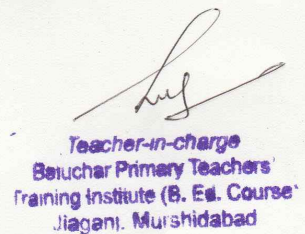 Teacher-in-charge
Beluchar Primary Teachers'
Training Institute (B. Ed. Course
Jiaganj. Murshidabad